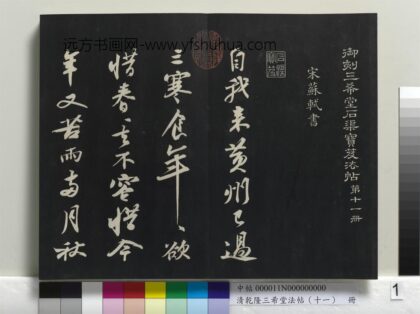 远方书画网-www.yfshuhua.com
御刻三希堂石渠寶笈法帖第十一冊
宋蘇軾書
自我来黃州已過
三寒食年〻欲
惜春〻去不容惜今
年又苦雨兩月秋
1
中帖 000011N000000000
清乾隆三希堂法帖（十一） 冊